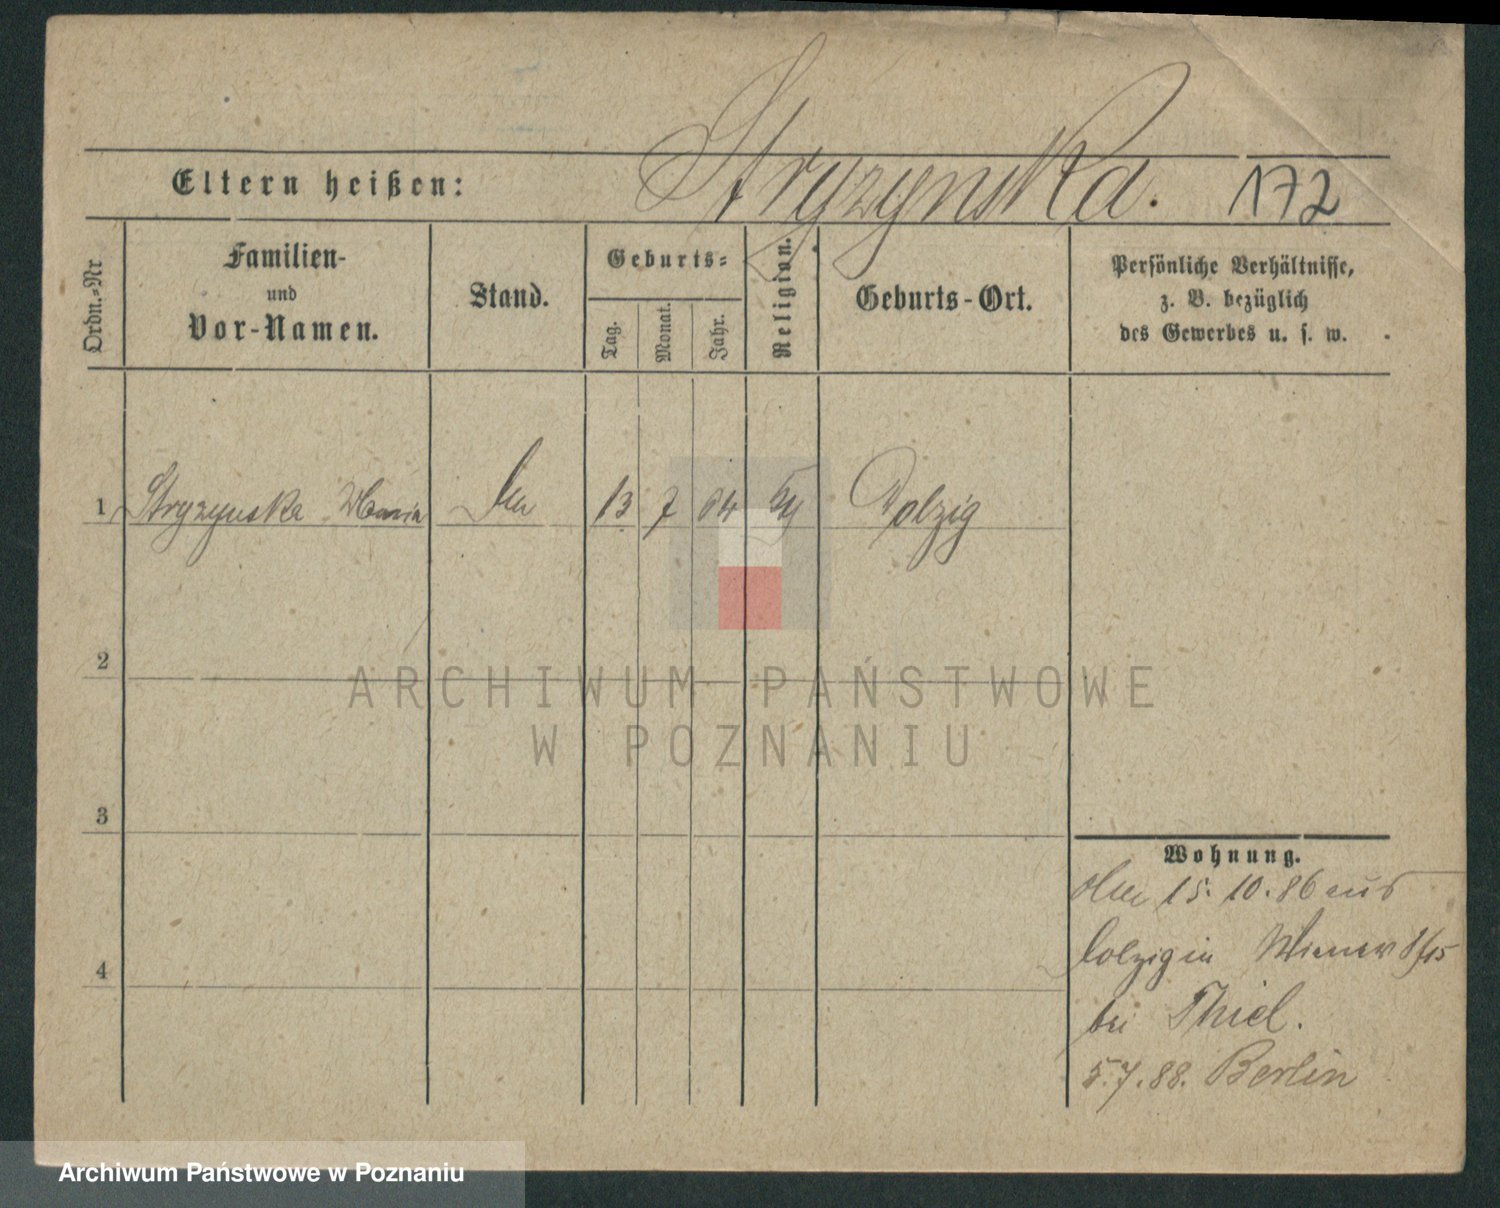 Stryzynska. 172
Eltern heißen:
Ordn.-Nr
Familien-
und
Vor-Namen.
Stand.
Geburts-
Tag.
Monat.
Jahr.
Religion.
Geburts-Ort.
Persönliche Verhältnisse,
z. B. bezüglich
des Gewerbes u. s. w.
1 Stryzynska Maria 13 7 64 Dolzig
2
3
4
ARCHIWUM PAŃSTWOWE
W POZNANIU
Wohnung.
15. 10. 86 aus
Dolzig in Wiener
bei Thiel.
5.7.88. Berlin
Archiwum Państwowe w Poznaniu